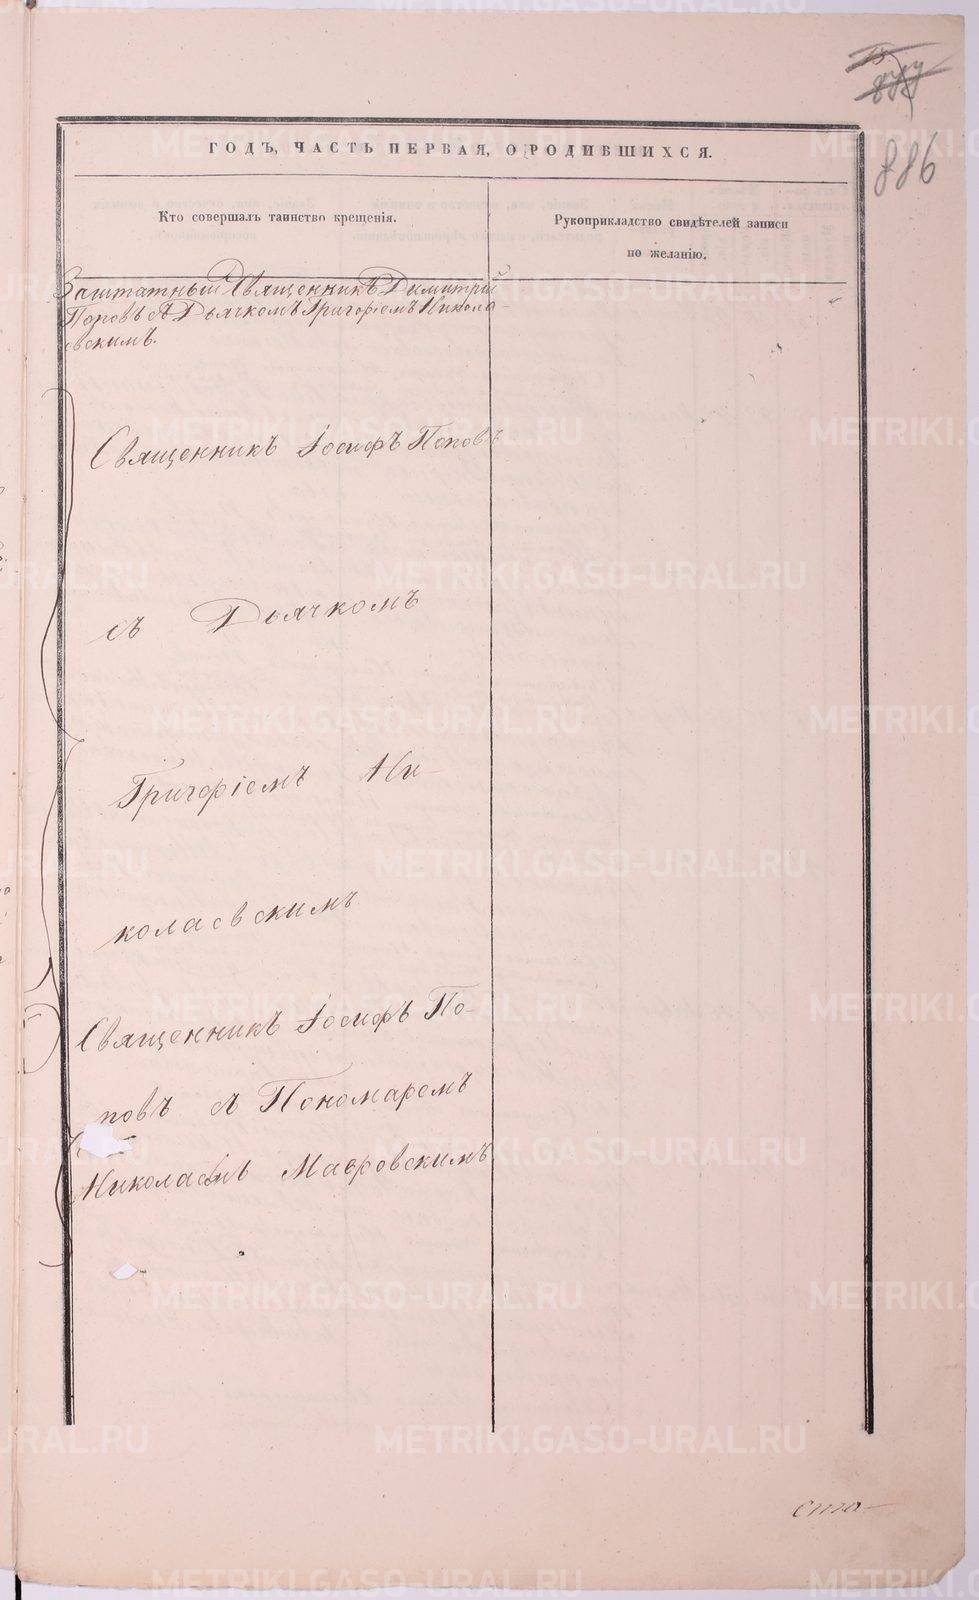 886
ГОДЪ, ЧАСТЬ ПЕРВАЯ, О РОДИВШИХСЯ.
Кто совершалъ таинство крещенія.
Рукоприкладство свидѣтелей записи
по желанію.
Заштатный Священникъ Димитрій
Поповъ съ Дьячкомъ Григоріемъ Никола-
евскимъ.
Священникъ Іосифъ Поповъ
съ Дьячкомъ
Григоріемъ Ни-
колаевскимъ
Священникъ Іосифъ По-
повъ съ Пономаремъ
Николаемъ Мавровскимъ
сто-
METRIKI.GASO-URAL.RU